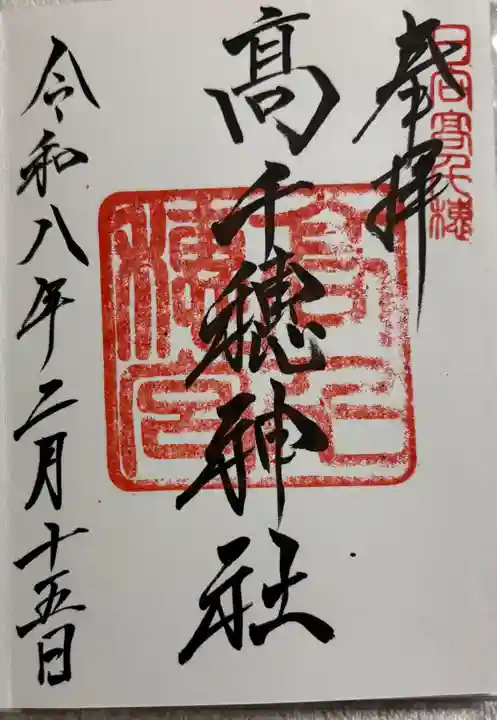 奉拝
日向高千穂
髙千穂神社
高千穂宮
令和八年二月十五日